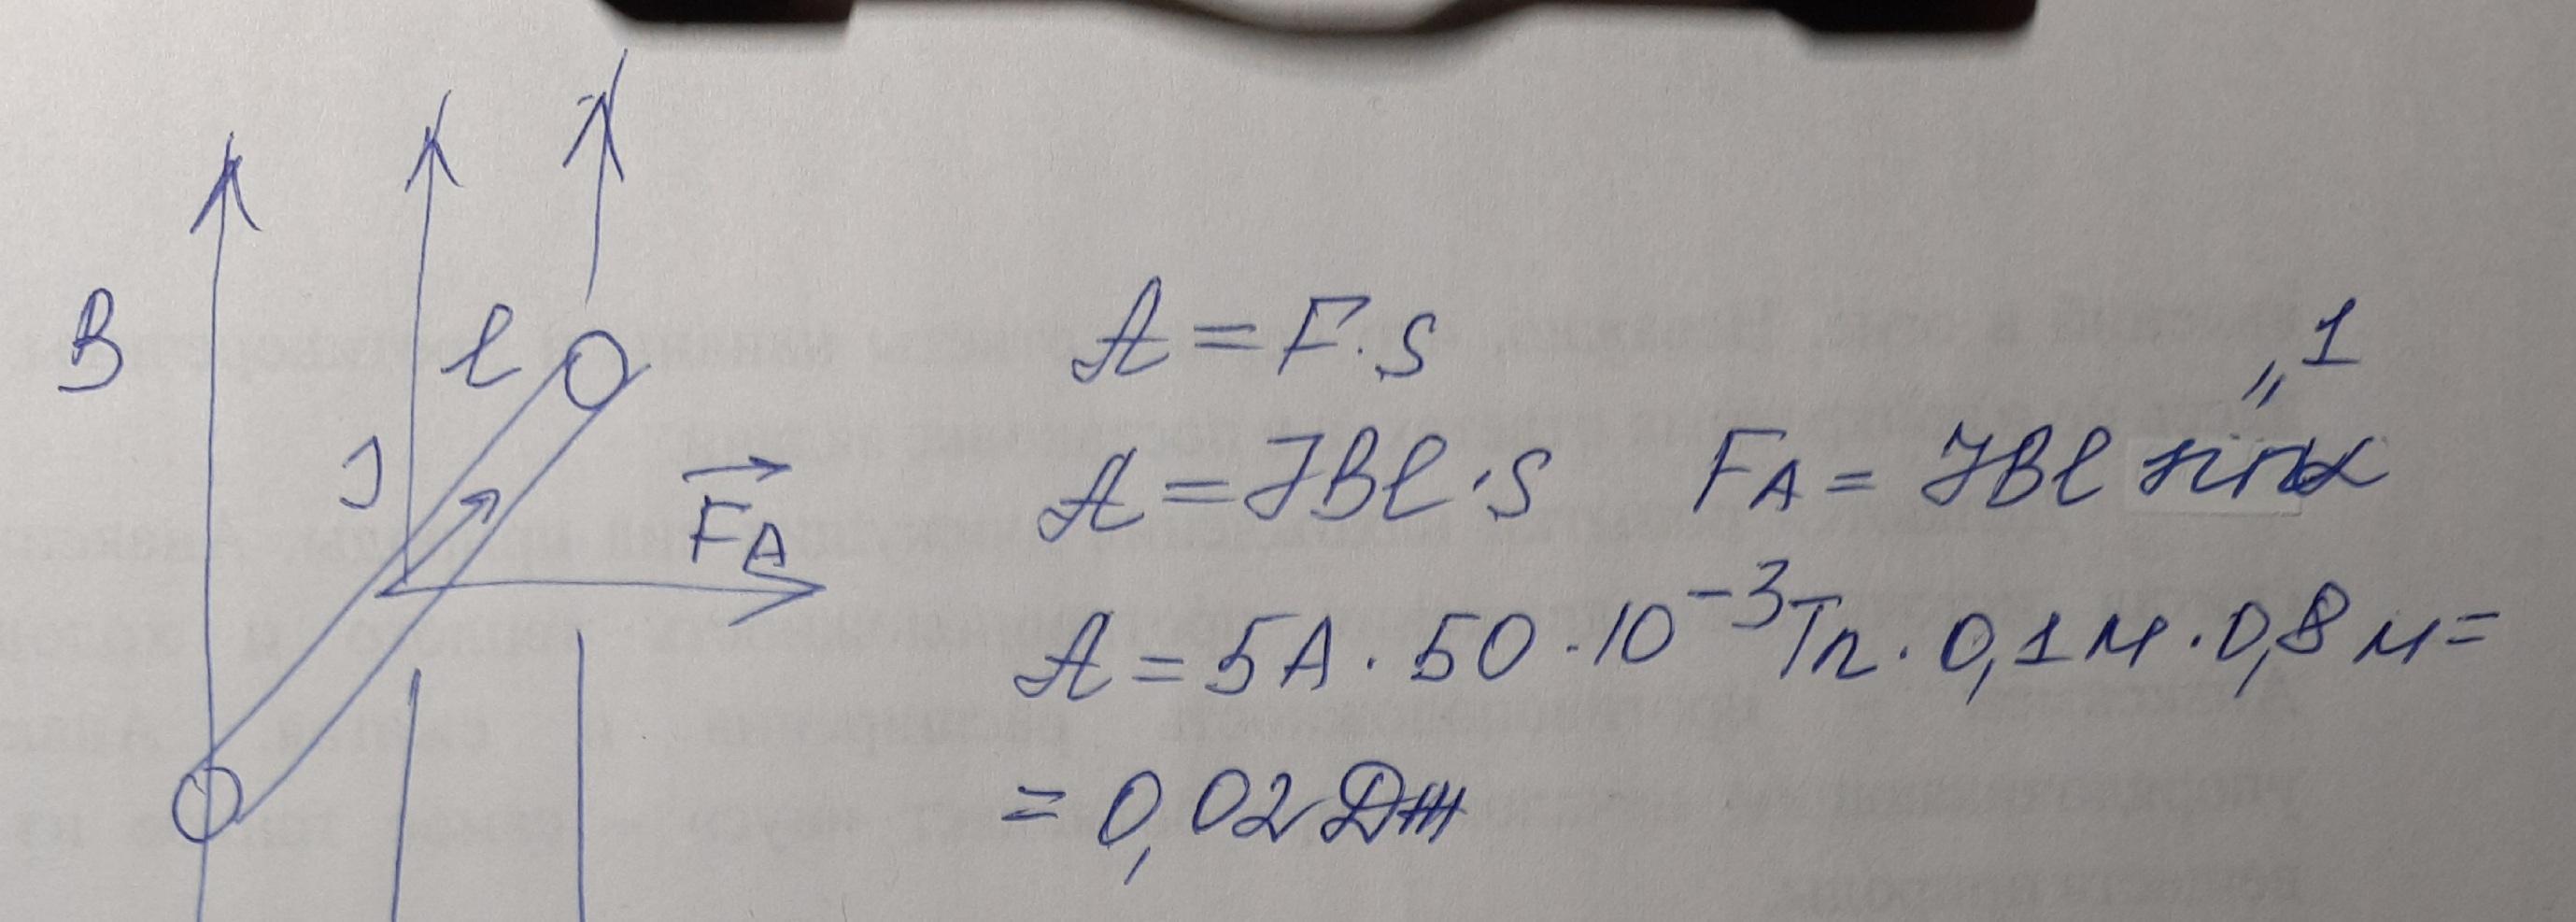 B
l
J
F_A
A = F·S
"1
A = JBl·S F_A = JBl sinα
A = 5A · 50 · 10⁻³ Тл · 0,1 м · 0,8 м =
= 0,02 Дж